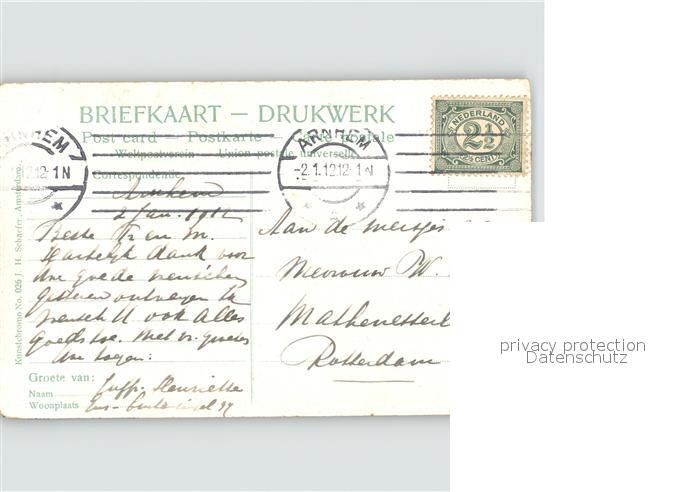 BRIEFKAART — DRUKWERK
Post card — Postkarte — Carte postale
Weltpostverein Union postale universelle
Correspondentie
ARNHEM
2.12-1N
ARNHEM
-2.1.12.12-1N
2
NEDERLAND
2½
2½ CENT
Kunstchromo No. 026 J. H. Schaefer, Amsterdam.
Arnhem
2 Jan. 1912
Beste
Hartelijk dank voor
Uwe goede wenschen
gisteren ontvangen ik
wensch U ook alles
goeds toe. Met vr. groeten
Groete van: Juffr. Henriette
Naam
Woonplaats
Aan de meisjes
Mevrouw W.
Mathenesserl
Rotterdam
privacy protection
Datenschutz